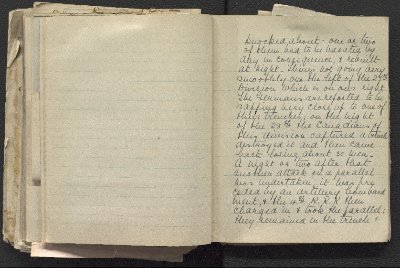 knocked about - one or two
of them had to be vacated by
day in consequence, & rebuilt
at night. Things not going very
smoothly on the left of the 27th
Division which is on our right
The Germans are reported to be
sapping very close up to one of
their trenches; on the night
of the 28th the Canadians of
this division captured a trench
destroyed it and then came
back losing about 20 men.
A night or two after that
another attack on a parallel
was undertaken, it was pre
ceded by an artillery bombard
ment, & the 4th K.R.R. then
charged in & took the parallel;
they remained in the trench &